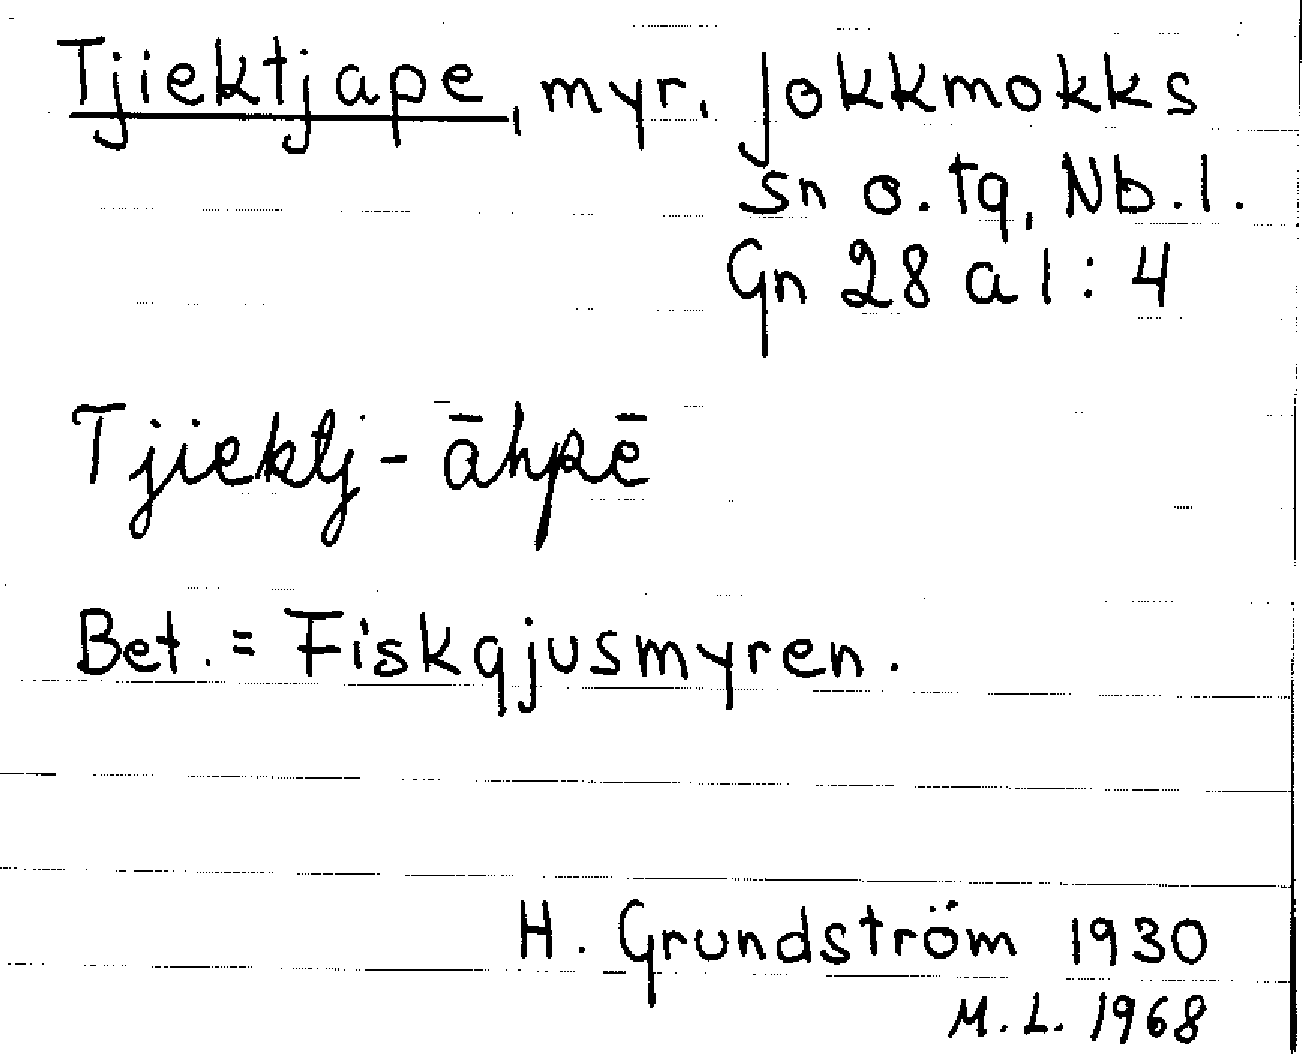 Tjiektjape, myr. Jokkmokks
sn o. tg, Nb.l.
Gn 28 a l : 4
Tjiektj-āhpē
Bet. = Fiskgjusmyren.
H. Grundström 1930
M. L. 1968